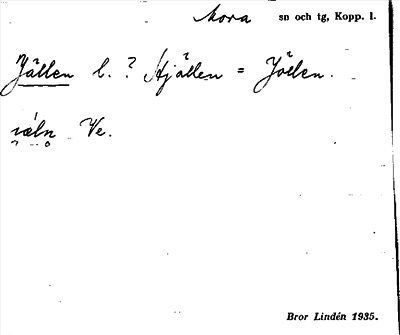 Mora sn och tg, Kopp. l.
Jällen l. ? Hjällen = Jöllen.
iæln Ve.
Bror Lindén 1935.